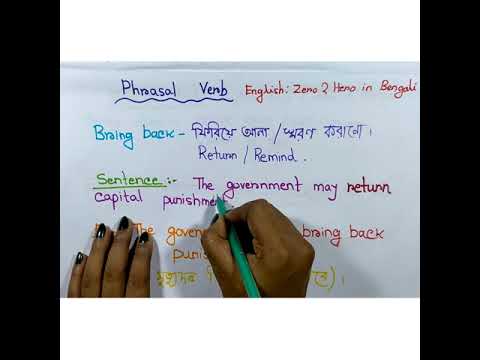 Phrasal Verb English: Zero 2 Hero in Bengali
Bring back - ফিরিয়ে আনা / স্মরণ করানো।
Return / Remind.
Sentence :- The government may return
capital punishmen
The govern bring back
punis